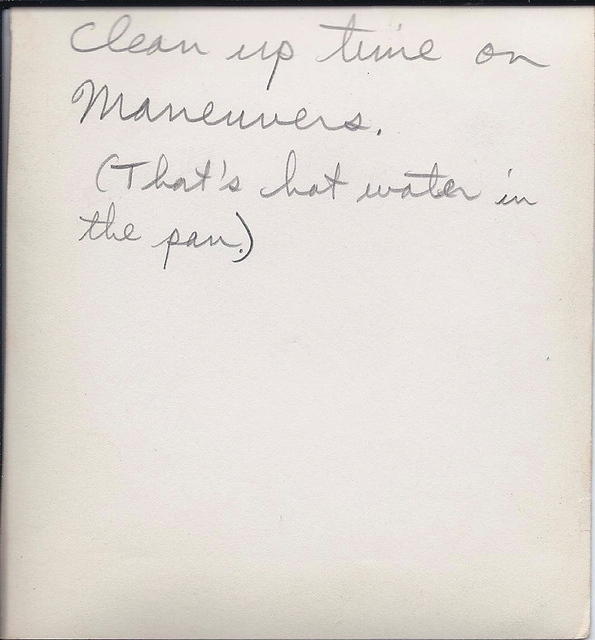 Clean up time on
Maneuvers.
(That's hot water in
the pan.)